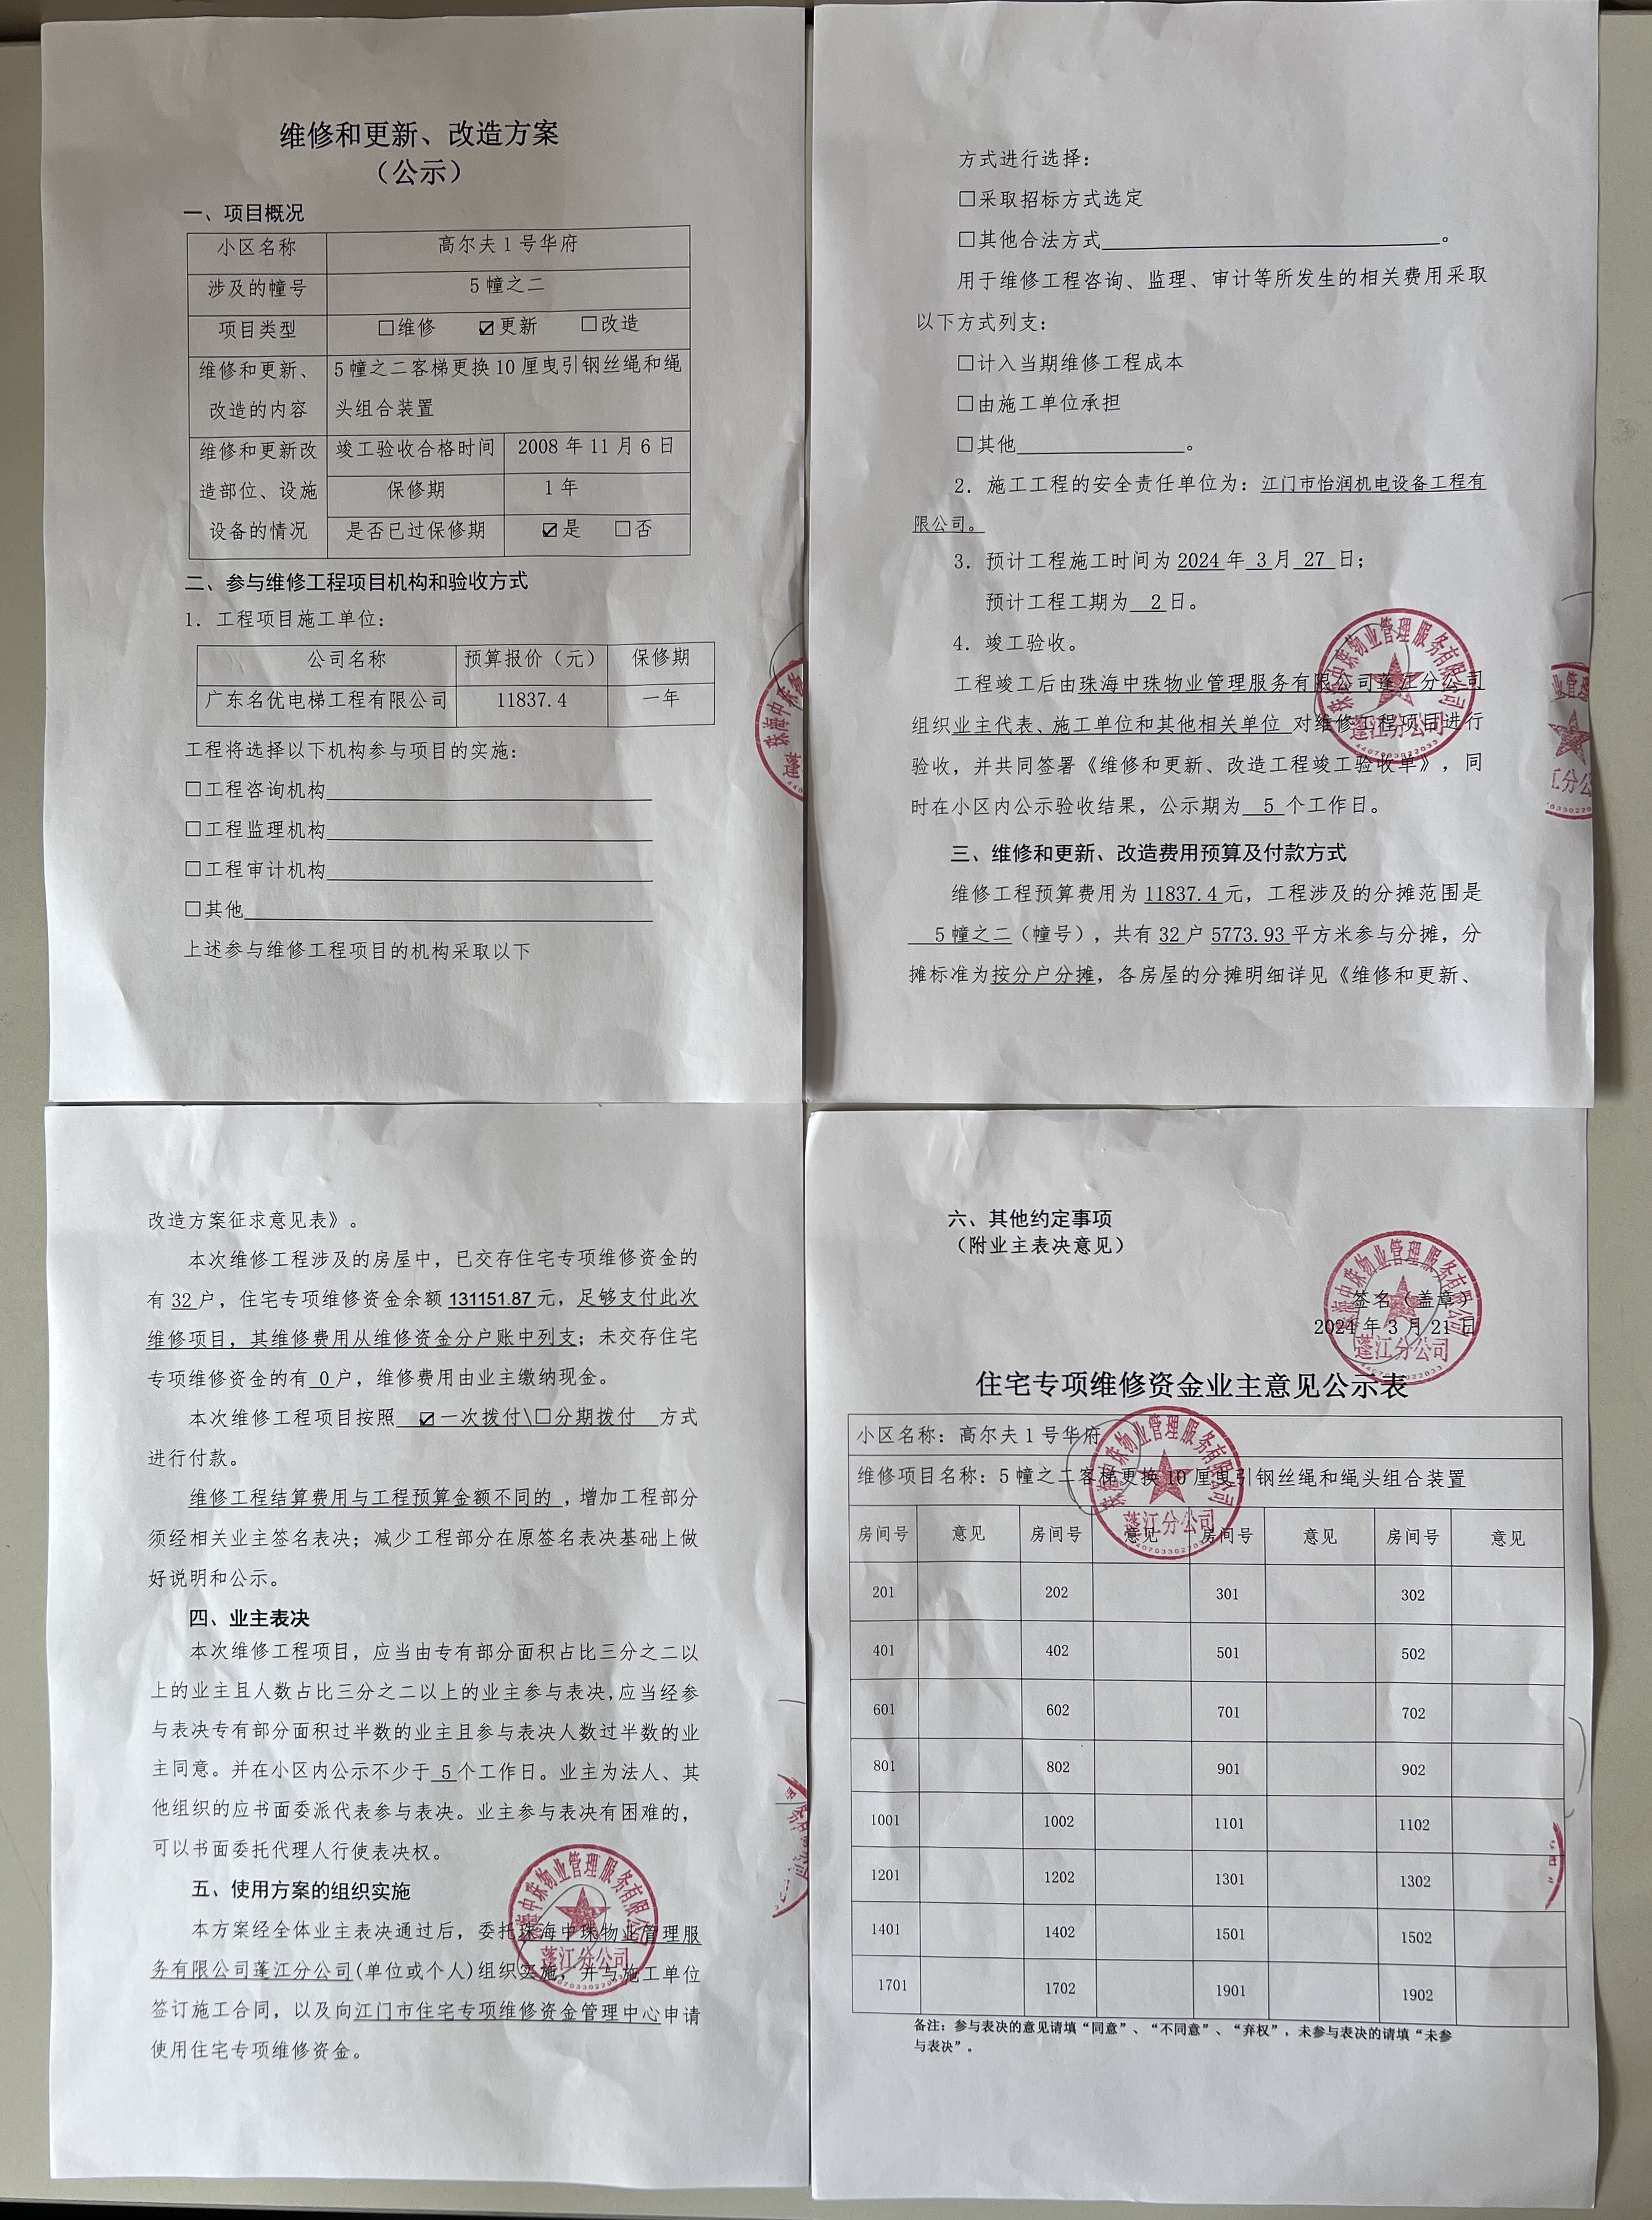 维修和更新、改造方案
（公示）
一、项目概况
小区名称 高尔夫1号华府
涉及的幢号 5幢之二
项目类型 □维修 ☑更新 □改造
维修和更新、改造的内容 5幢之二客梯更换10厘曳引钢丝绳和绳头组合装置
维修和更新改造部位、设施设备的情况 竣工验收合格时间 2008年11月6日
保修期 1年
是否已过保修期 ☑是 □否
二、参与维修工程项目机构和验收方式
1. 工程项目施工单位：
公司名称 预算报价（元） 保修期
广东名优电梯工程有限公司 11837.4 一年
工程将选择以下机构参与项目的实施：
□工程咨询机构
□工程监理机构
□工程审计机构
□其他
上述参与维修工程项目的机构采取以下
方式进行选择：
□采取招标方式选定
□其他合法方式 。
用于维修工程咨询、监理、审计等所发生的相关费用采取
以下方式列支：
□计入当期维修工程成本
□由施工单位承担
□其他 。
2. 施工工程的安全责任单位为：江门市怡润机电设备工程有
限公司。
3. 预计工程施工时间为2024年 3月 27 日；
预计工程工期为 2日。
4. 竣工验收。
工程竣工后由珠海中珠物业管理服务有限公司蓬江分公司
组织业主代表、施工单位和其他相关单位 对维修工程项目进行
验收，并共同签署《维修和更新、改造工程竣工验收单》，同
时在小区内公示验收结果，公示期为 5 个工作日。
三、维修和更新、改造费用预算及付款方式
维修工程预算费用为11837.4元，工程涉及的分摊范围是
5幢之二（幢号），共有32户5773.93平方米参与分摊，分
摊标准为按分户分摊，各房屋的分摊明细详见《维修和更新、
珠海中珠物业管理服务有限公司
蓬江分公司
4407033022033
改造方案征求意见表》。
本次维修工程涉及的房屋中，已交存住宅专项维修资金的
有32户，住宅专项维修资金余额131151.87元，足够支付此次
维修项目，其维修费用从维修资金分户账中列支；未交存住宅
专项维修资金的有 0户，维修费用由业主缴纳现金。
本次维修工程项目按照 ☑一次拨付\□分期拨付 方式
进行付款。
维修工程结算费用与工程预算金额不同的 ，增加工程部分
须经相关业主签名表决；减少工程部分在原签名表决基础上做
好说明和公示。
四、业主表决
本次维修工程项目，应当由专有部分面积占比三分之二以
上的业主且人数占比三分之二以上的业主参与表决,应当经参
与表决专有部分面积过半数的业主且参与表决人数过半数的业
主同意。并在小区内公示不少于 5个工作日。业主为法人、其
他组织的应书面委派代表参与表决。业主参与表决有困难的，
可以书面委托代理人行使表决权。
五、使用方案的组织实施
本方案经全体业主表决通过后，委托珠海中珠物业管理服
务有限公司蓬江分公司(单位或个人)组织实施，并与施工单位
签订施工合同，以及向江门市住宅专项维修资金管理中心申请
使用住宅专项维修资金。
珠海中珠物业管理服务有限公司
蓬江分公司
六、其他约定事项
（附业主表决意见）
签名（盖章）
2024年3月21日
珠海中珠物业管理服务有限公司
蓬江分公司
4407033022033
住宅专项维修资金业主意见公示表
小区名称：高尔夫1号华府
维修项目名称：5幢之二客梯更换10厘曳引钢丝绳和绳头组合装置
珠海中珠物业管理服务有限公司
蓬江分公司
房间号 意见 房间号 意见 房间号 意见 房间号 意见
201 202 301 302
401 402 501 502
601 602 701 702
801 802 901 902
1001 1002 1101 1102
1201 1202 1301 1302
1401 1402 1501 1502
1701 1702 1901 1902
备注：参与表决的意见请填“同意”、“不同意”、“弃权”，未参与表决的请填“未参
与表决”。